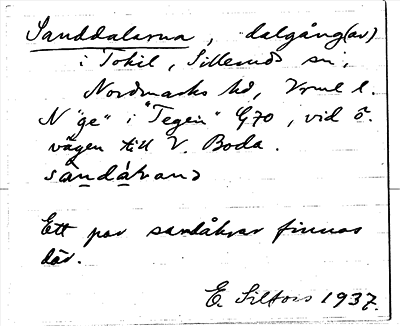 Sanddalarna, dalgång(ar)
i Tokil, Silleruds sn,
Nordmarks hd, Vrml l.
N "ge" i "Tegen" G70, vid ö.
vägen till V. Boda.
Ett par sandåkrar finnas
där.
E. Silfors 1937.